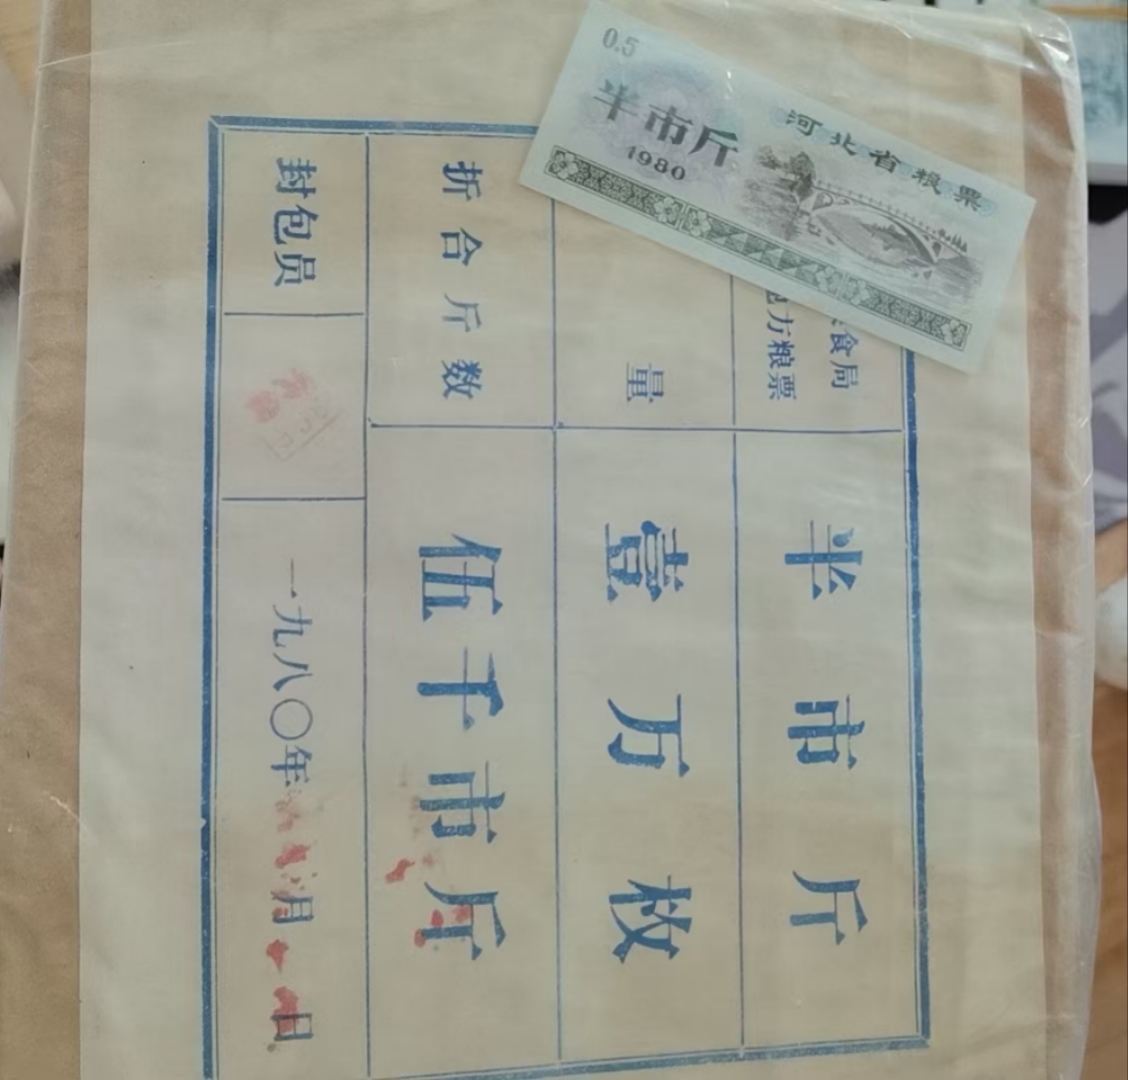 0.5
半市斤
1980
河北省粮票
食局
方粮票
半市斤
量
壹万枚
折合斤数
伍千市斤
封包员
一九八〇年
月
日